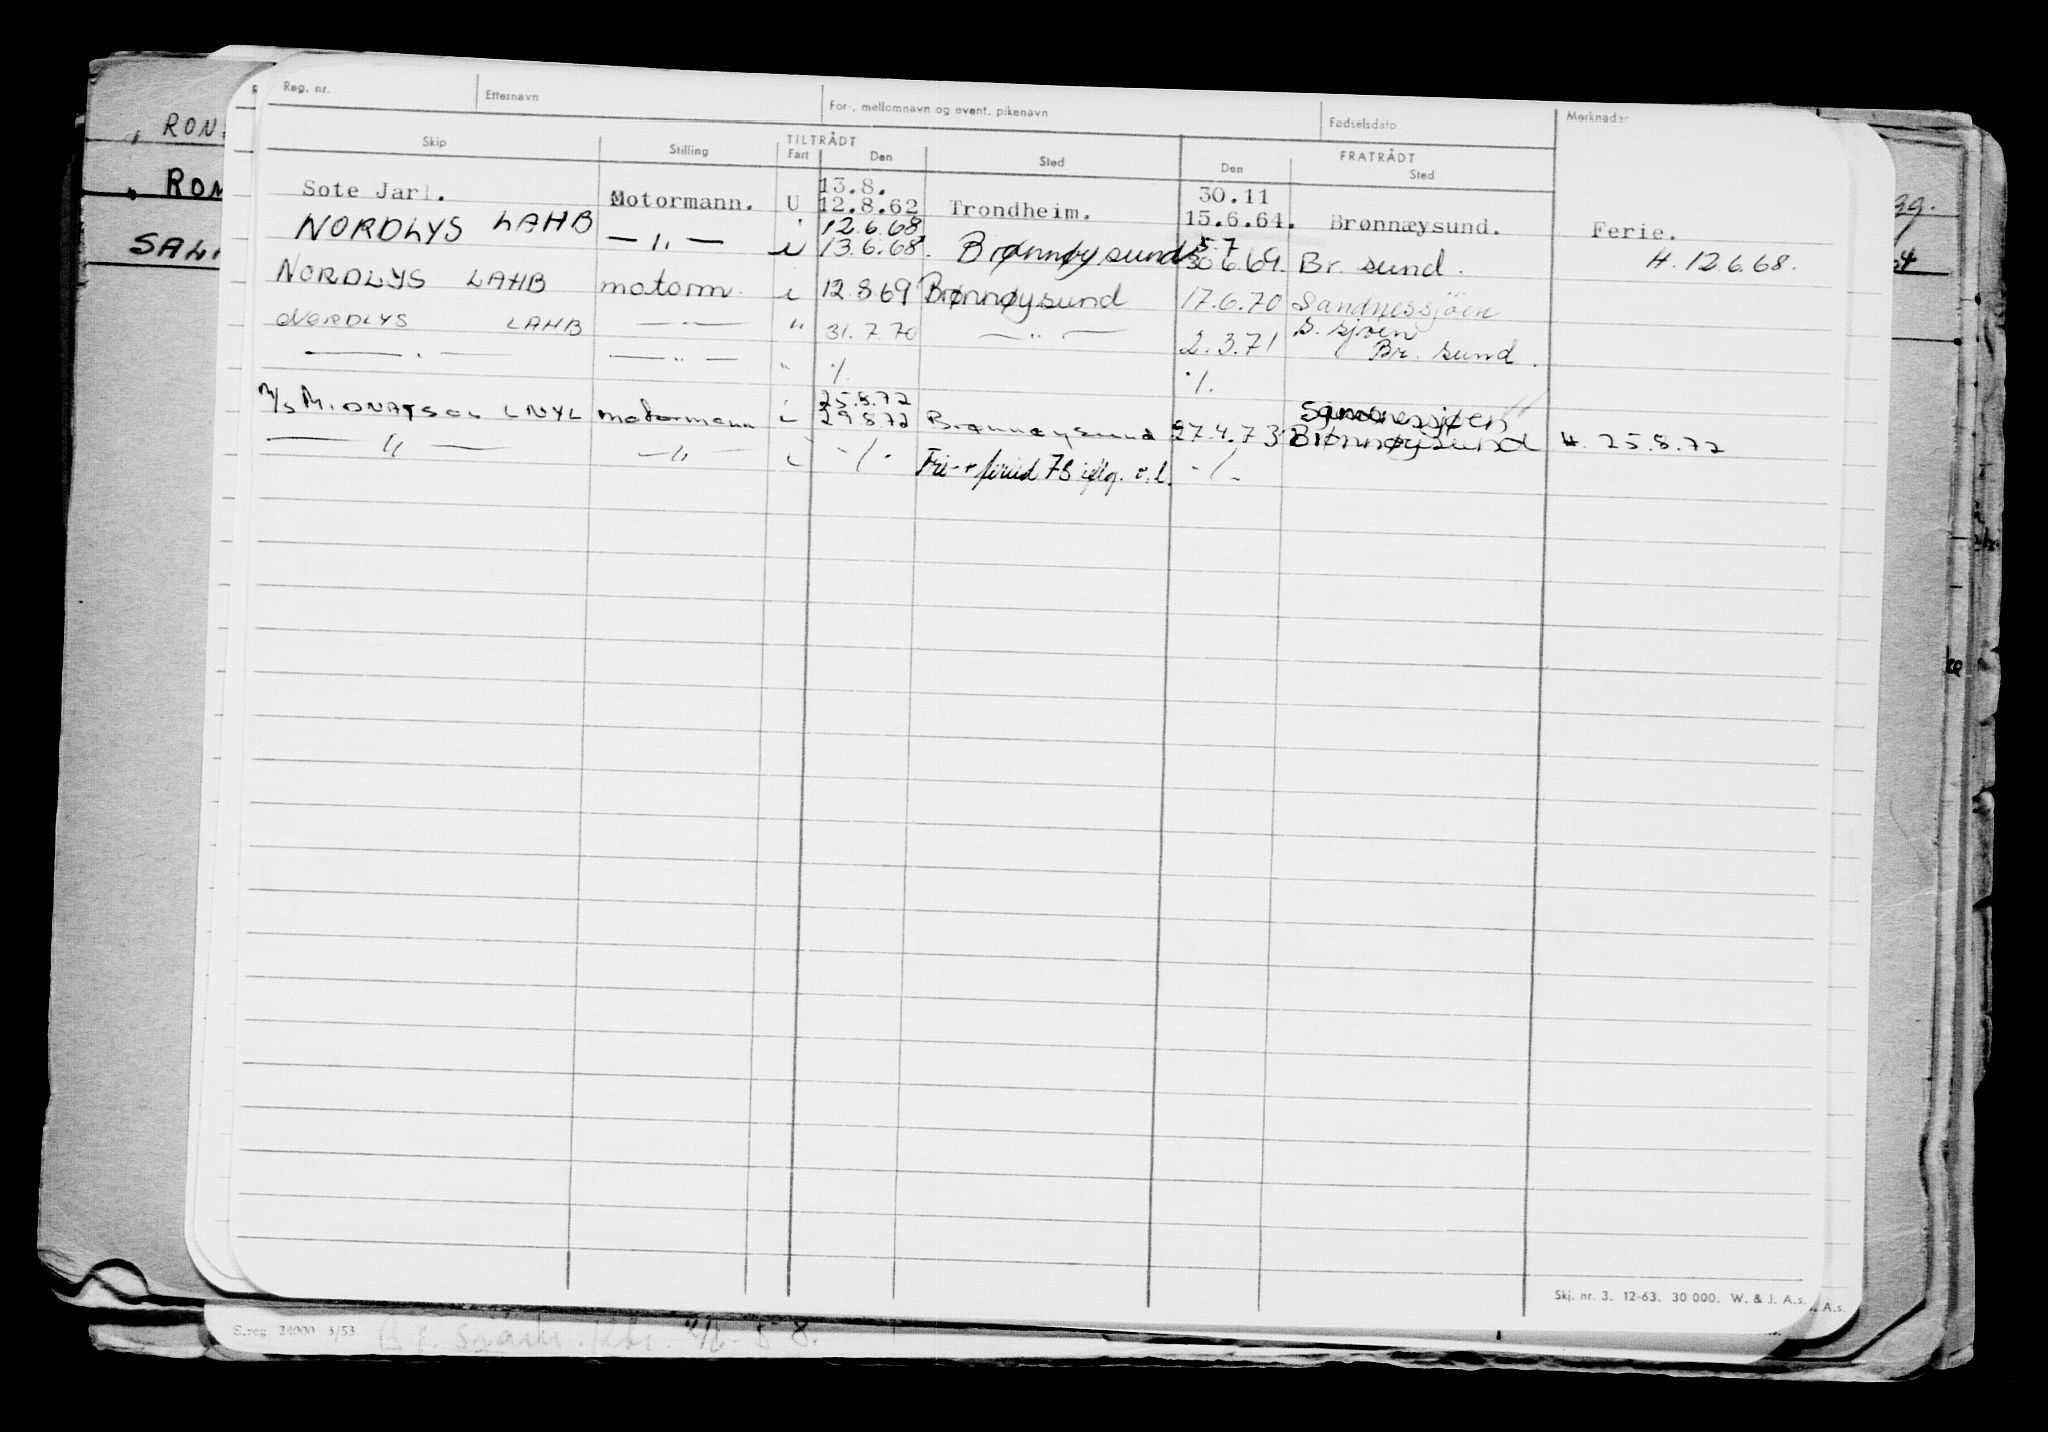 Reg. nr. Etternavn For-, mellomnavn og event. pikenavn Fødselsdato Merknader
TILTRÅDT FRATRÅDT
Skip Stilling Fart Den Sted Den Sted
13.8. 30.11
Sote Jarl. Motormann. U 12.8.62 Trondheim. 15.6.64. Brønnøysund. Ferie.
12.6.68 5.7
NORDLYS LAHB —"— i 13.6.68. Brønnøysund 30.6.69. Br. sund. H. 12.6.68.
NORDLYS LAHB motorm. i 12.8.69 Brønnøysund 17.6.70 Sandnessjöen
S. sjøen
NORDLYS LAHB —"— " 31.7.70 —"— 2.3.71 Br. sund.
—"— —"— " ./. ./.
25.8.72 Sandnessjøen
M/S MIDNATSOL LNYL motormann i 29.8.72 Brønnøysund 27.4.73 Brønnøysund H. 25.8.72
—"— —"— i -/- Fri- + feried 73 iflg. -/-
Skj. nr. 3. 12-63. 30 000. W. & J. A.s.
A.s.
RON
RON
SAL
S.reg. 24000 3/53